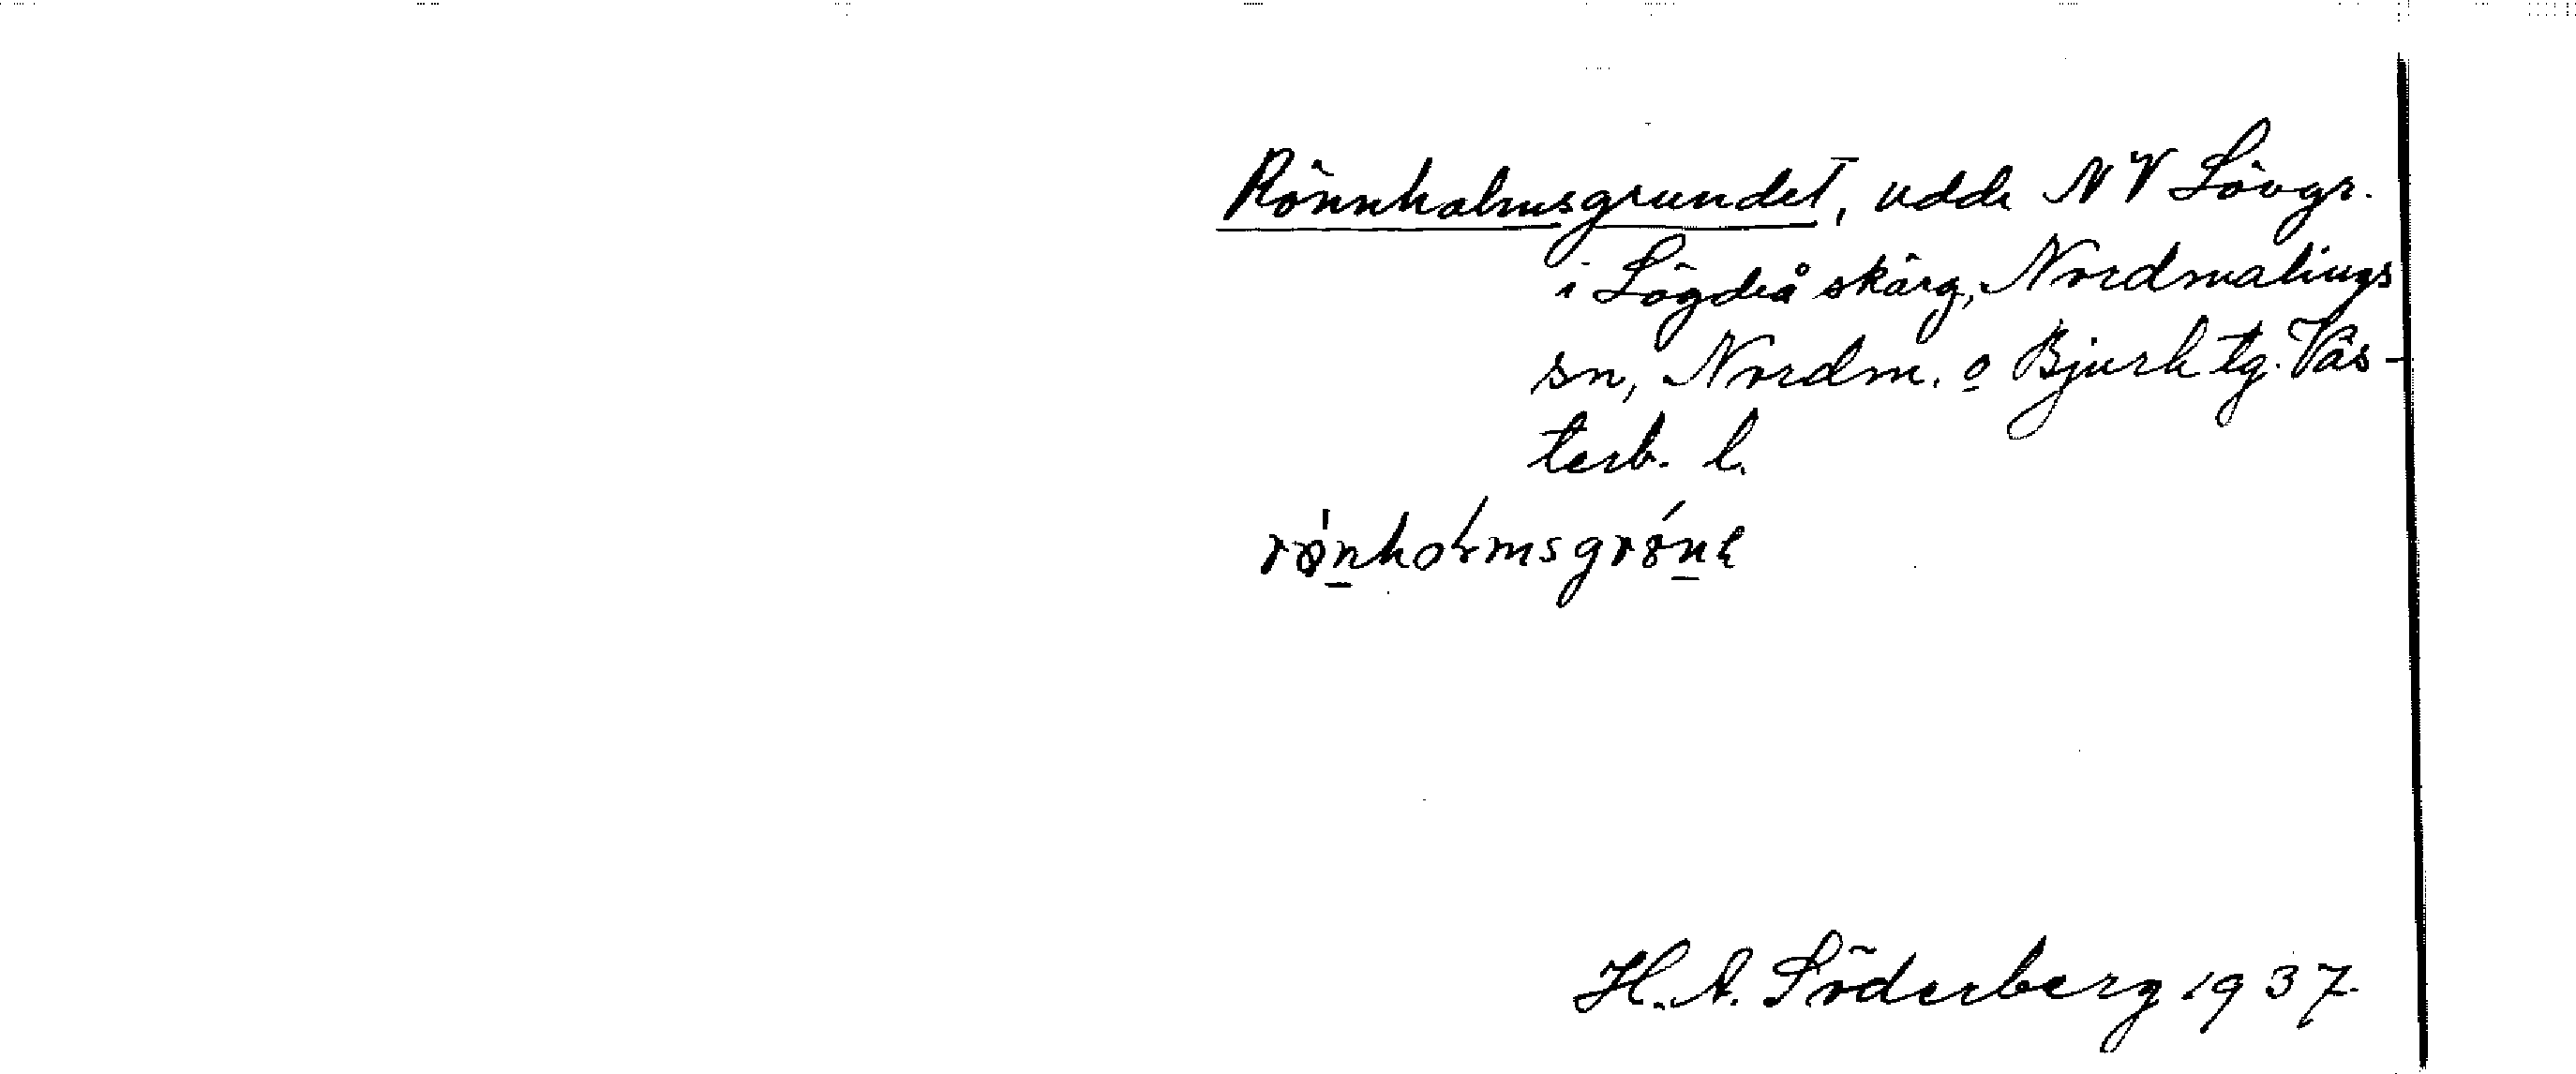 Rönnholmsgrundet, udde NV Lövgr.
i Lögdeå skärg, Nordmalings
sn, Nordm. o Bjurh tg. Väs-
terb. l.
rø̀nhoɫmsgrónḛ
H. A. Söderberg 1937.